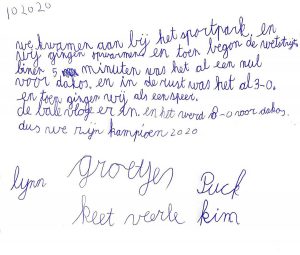 102020
we kwamen aan bij het sportpark en
wij gingen opwarmen en toen begon de wetstrijt
binen 5 minuten was het al een nul
voor dakos. en in de rust was het al 3-0.
en toen gingen wij als een speer.
de bale vloge er in en het werd 8-0 voor dakos.
dus we zijn kampioen 2020
groetjes
lynn Puck
keet veerle kim